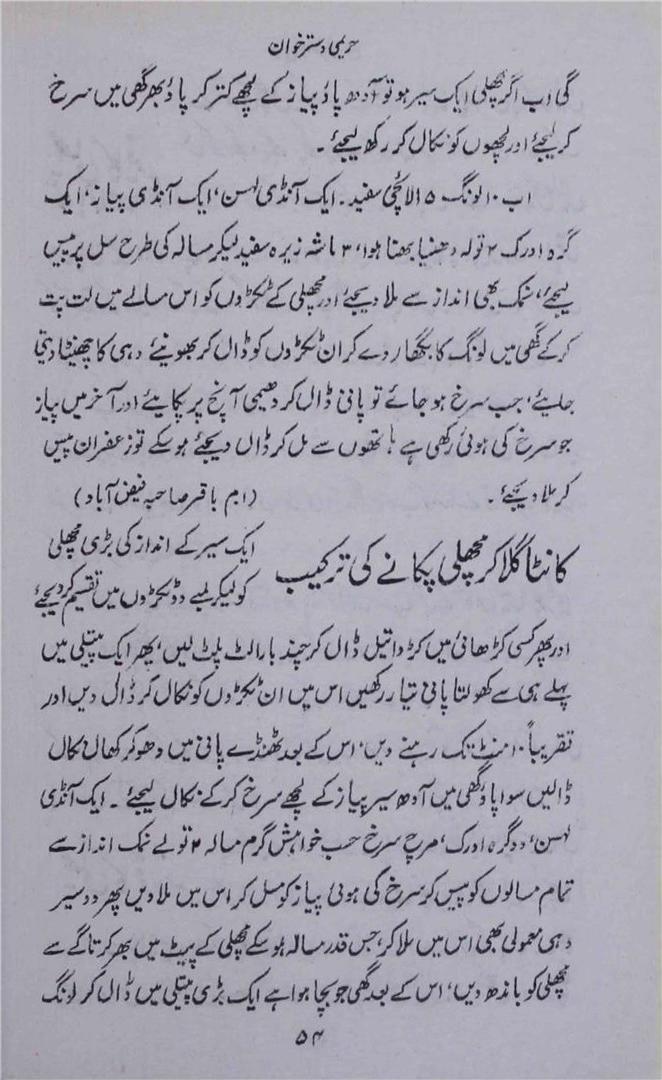 حریمی دسترخوان
گی اب اگر مچھلی ایک سیر ہو تو آدھ پاؤ پیاز کے لچھے کتر کر پاؤ بھر گھی میں سرخ
کر لیجئے اور لچھوں کو نکال کر رکھ لیجئے ۔
اب ۱۰ لونگ ۵ الائچی سفید ۔ ایک آنڈی لہسن، ایک آنڈی پیاز، ایک
گرہ ادرک ۲ تولہ دھنیا بھنا ہوا، ۳ ماشہ زیرہ سفید لیکر مسالہ کی طرح سل پر پیس
لیجئے، نمک بھی انداز سے ملا دیجئے اور مچھلی کے ٹکڑوں کو اس مسالے میں لت پت
کر کے گھی میں لونگ کا بگھار دے کر ان ٹکڑوں کو ڈال کر بھونیئے دہی کا چھینٹا دیتی
جایئے، جب سرخ ہو جائے تو پانی ڈال کر دھیمی آنچ پر پکایئے اور آخر میں پیاز
جو سرخ کی ہوئی رکھی ہے ہاتھوں سے مل کر ڈال دیجئے ہو سکے تو زعفران پیس
کر ملا دیجئے ۔ (ام باقر صاحبہ فیض آباد)
کانٹا گلا کر مچھلی پکانے کی ترکیب
ایک سیر کے انداز کی بڑی مچھلی
کو لیکر لمبے دو ٹکڑوں میں تقسیم کر دیجئے
اور پھر کسی کڑھائی میں کڑوا تیل ڈال کر چند بار الٹ پلٹ لیں، پھر ایک پتیلی میں
پہلے ہی سے کھولتا پانی تیار رکھیں اس میں ان ٹکڑوں کو نکال کر ڈال دیں اور
تقریباً ۱۰ منٹ تک رہنے دیں، اس کے بعد ٹھنڈے پانی میں دھو کر کھال نکال
ڈالیں سوا پاؤ گھی میں آدھ سیر پیاز کے لچھے سرخ کر کے نکال لیجئے ۔ ایک آنڈی
لہسن، دو گرہ ادرک، مرچ سرخ حسب خواہش گرم مسالہ ۲ تولے نمک انداز سے
تمام مسالوں کو پیس کر سرخ کی ہوئی پیاز کو مسل کر اس میں ملا دیں پھر دو سیر
دہی معمولی بھی اس میں ملا کر، جس قدر مسالہ ہو سکے مچھلی کے پیٹ میں بھر کر تاگے سے
مچھلی کو باندھ دیں، اس کے بعد گھی جو بچا ہوا ہے ایک بڑی پتیلی میں ڈال کر لونگ
۵۴